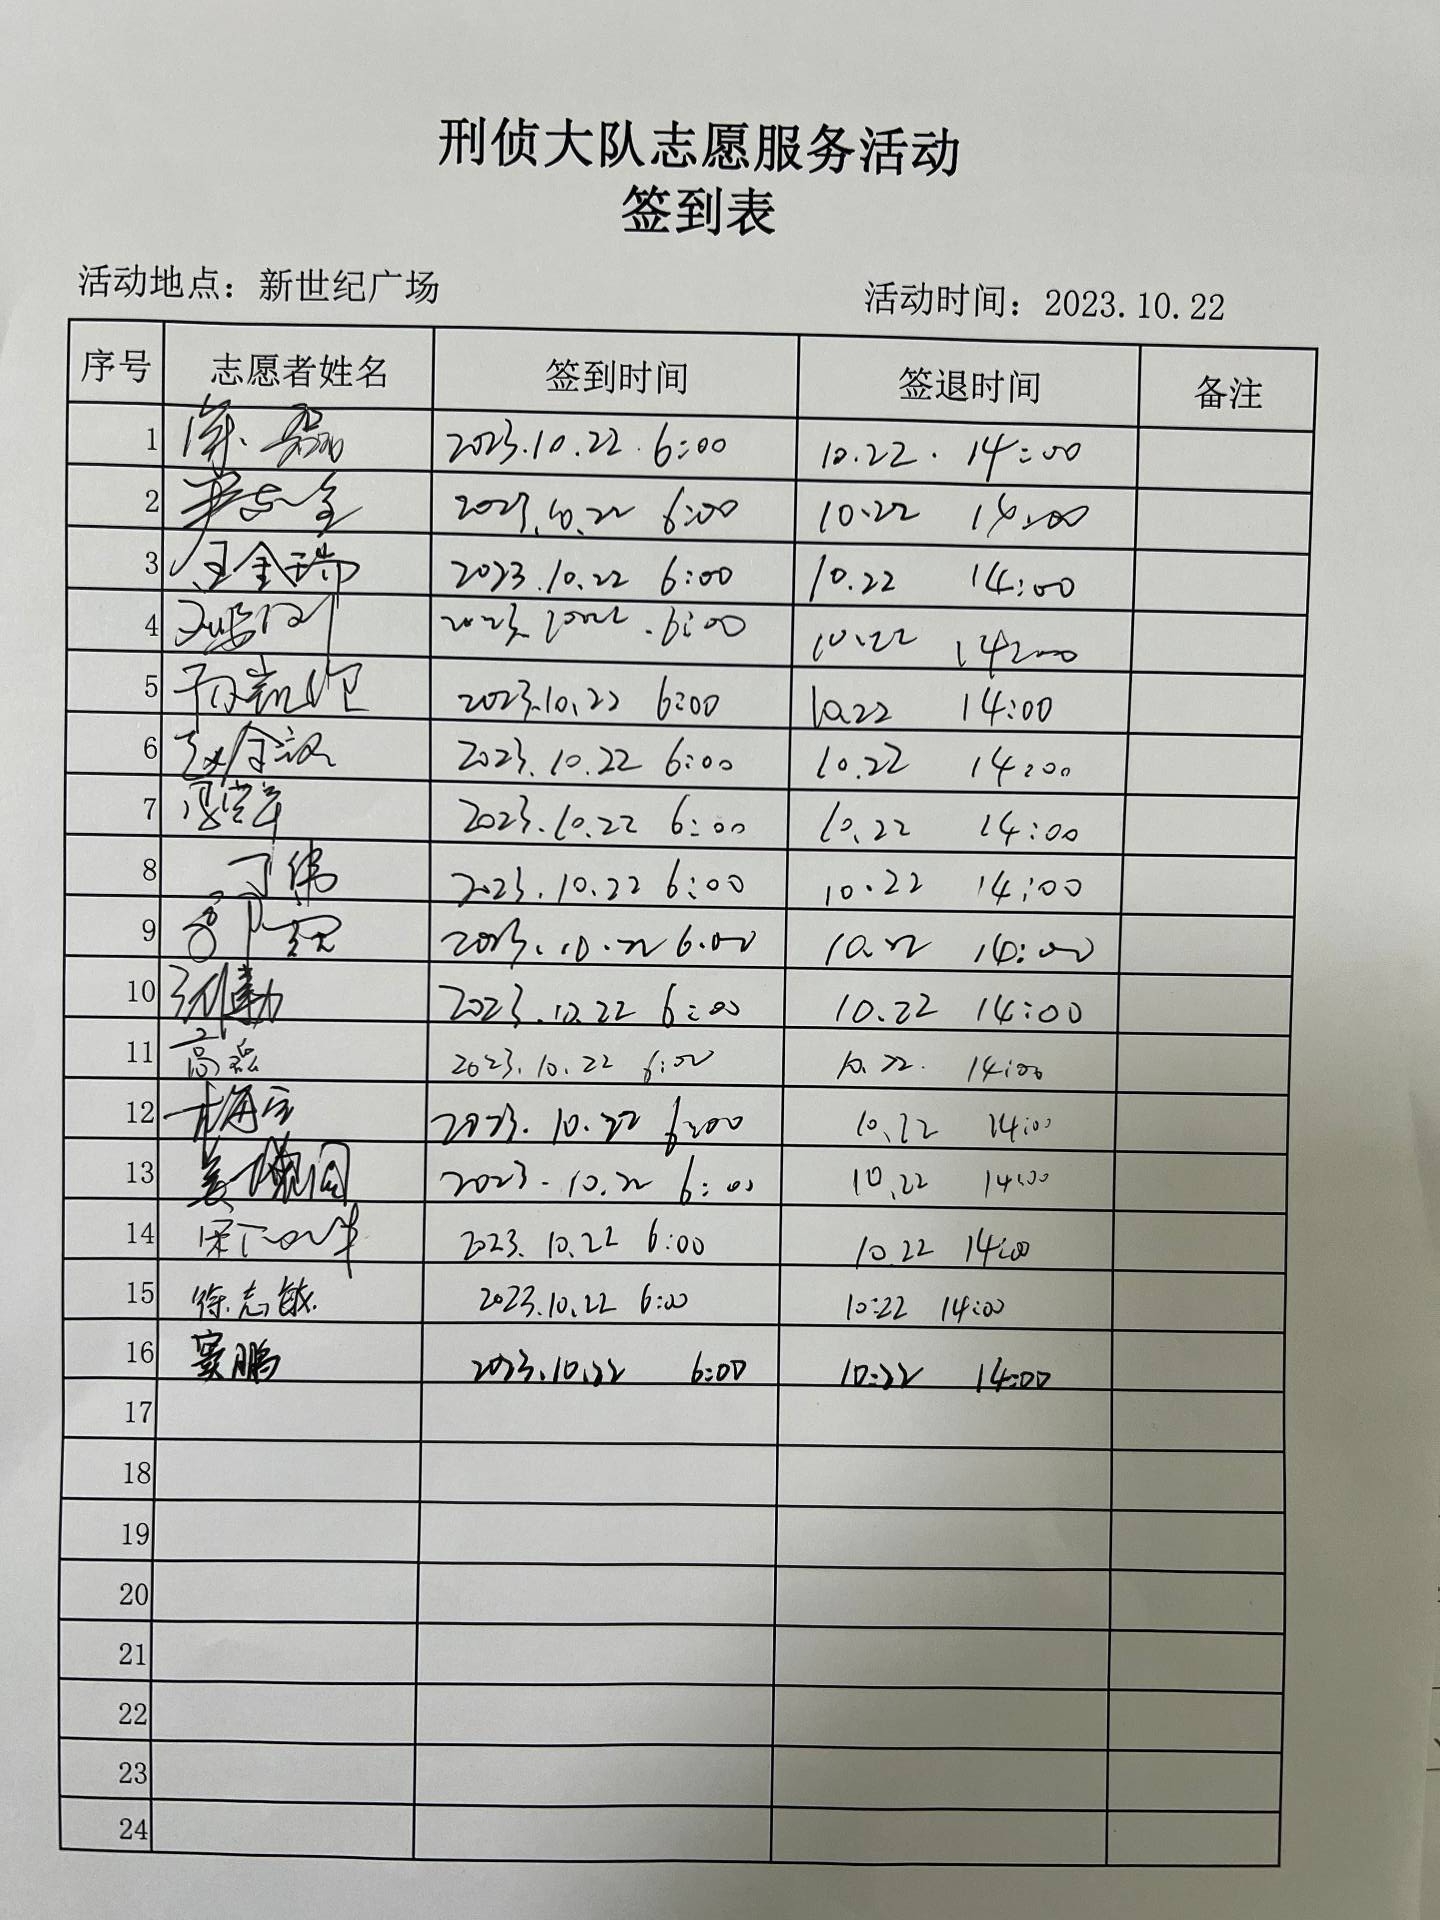 刑侦大队志愿服务活动
签到表
活动地点：新世纪广场 活动时间：2023.10.22
序号 志愿者姓名 签到时间 签退时间 备注
1 2023.10.22 6:00 10.22 14:00
2 2023.10.22 6:00 10.22 14:00
3 王金瑞 2023.10.22 6:00 10.22 14:00
4 2023.10.22 6:00 10.22 14:00
5 2023.10.22 6:00 10.22 14:00
6 2023.10.22 6:00 10.22 14:00
7 2023.10.22 6:00 10.22 14:00
8 丁伟 2023.10.22 6:00 10.22 14:00
9 2023.10.22 6:00 10.22 14:00
10 2023.10.22 6:00 10.22 14:00
11 高磊 2023.10.22 6:00 10.22 14:00
12 2023.10.22 6:00 10.22 14:00
13 2023.10.22 6:00 10.22 14:00
14 2023.10.22 6:00 10.22 14:00
15 徐志敏 2023.10.22 6:00 10:22 14:00
16 窦鹏 2023.10.22 6:00 10:22 14:00
17
18
19
20
21
22
23
24